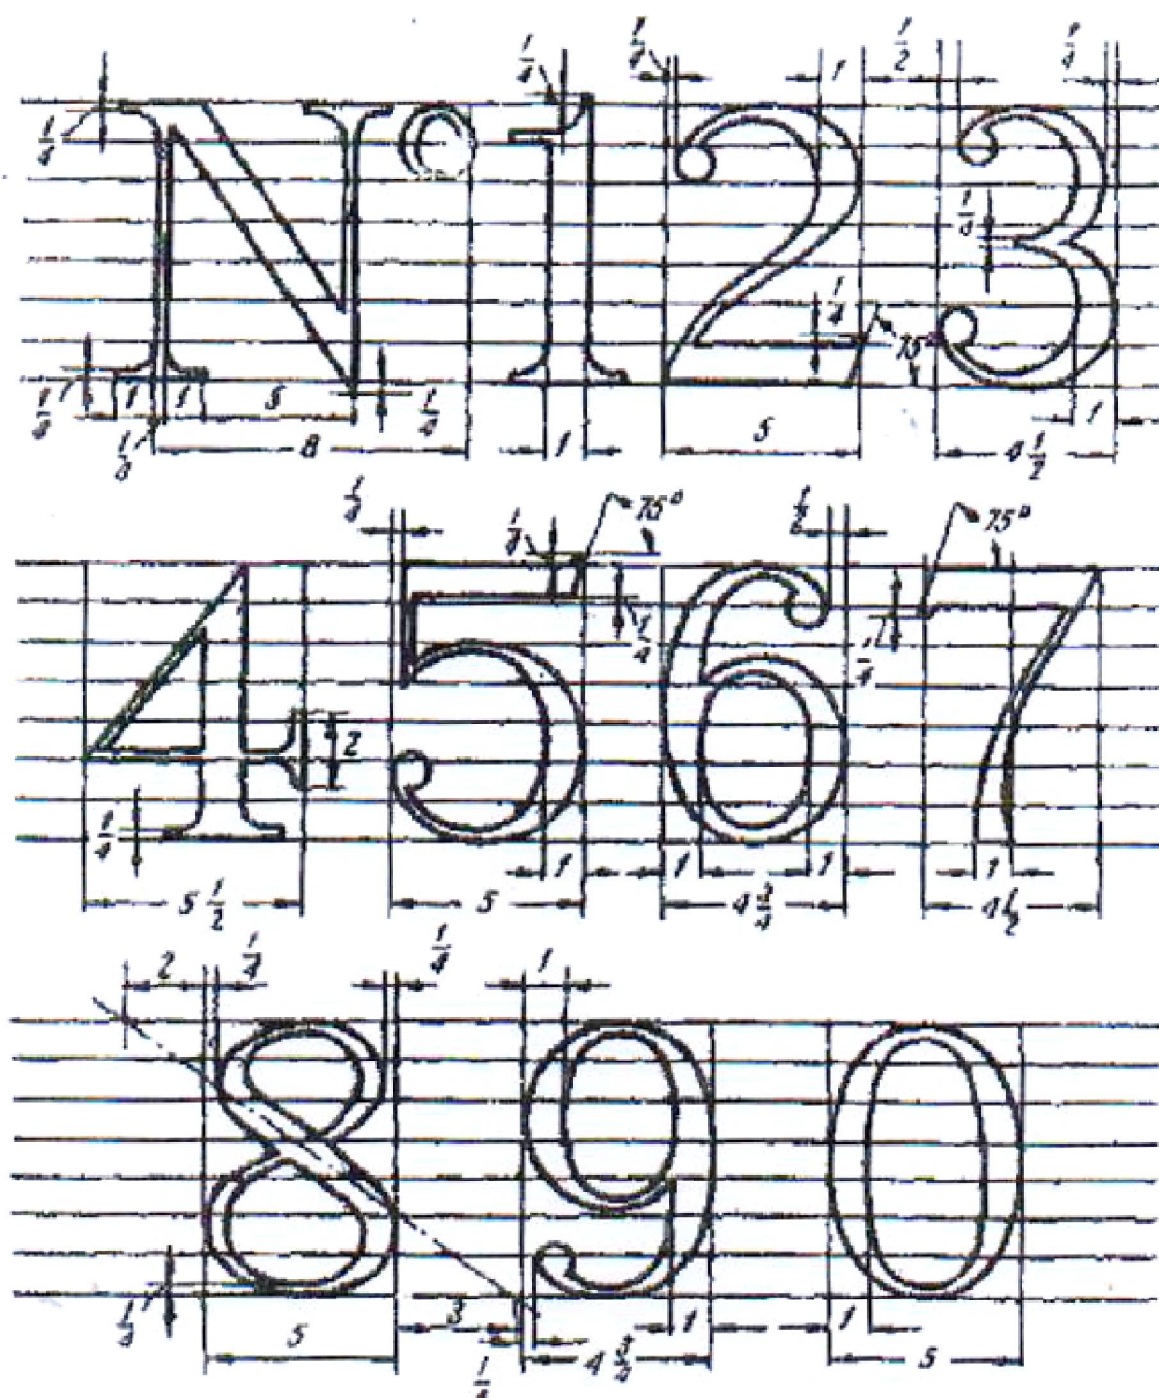 1/4 1/4 1 1/2 1/4
N° 1 2 3
1/4 1/8 1/4 75°
1/4 1 1 5 1/4 1/8 8 1 5 1 4 1/2
1/4 1/4 75° 1/2 75°
4 5 6 7
2 1/4 1/4 1/4
1 1 1 1
5 1/2 5 4 3/4 4 1/2
2 1/4 1/4 1
8 9 0
1/4 3 1 1
5 1/4 4 3/4 5